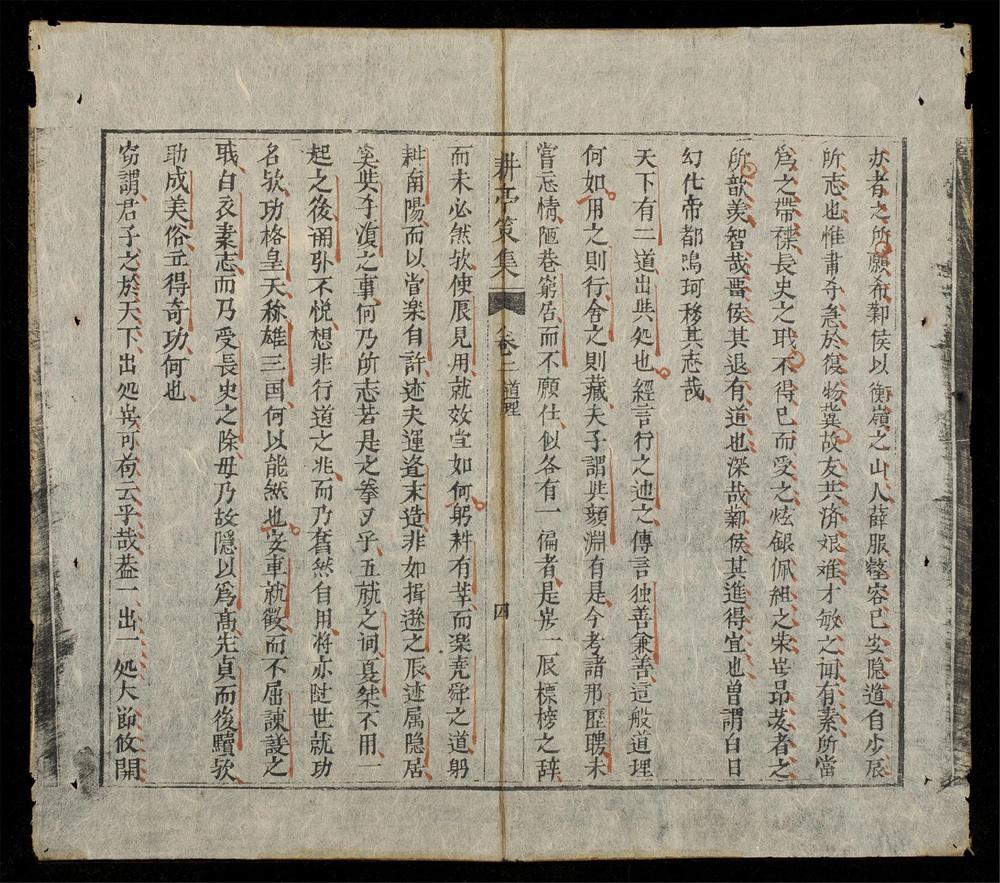 亦者之所願希鄴侯以衡嶺之山人薛服整容已安隐遁自少辰
所志也惟肅夺急於復物冀故友共済艰难才敏之诵有素所當
爲之帶襟長史之戢不得已而受之炫銀佩組之荣豈昻茇者之
所歆羡智哉晋侯其退有道也深哉鄴侯其進得宜也曽謂白日
幻化帝都鳴珂移其志哉
天下有二道出與処也經言行之迪之傳言独善兼善這般道理
何如用之則行舍之則藏夫子謂與顔淵有是今考諸那歷聘未
嘗忘情陋巷窮居而不願仕似各有一偏者是豈一辰標榜之辞
而未必然欤使辰見用就效當如何躬耕有莘而楽堯舜之道躬
耕南陽而以管楽自許迹夫運瓷末造非如揖遜之辰迹属隐居
奚與乎復之事何乃所志若是之拳〻乎五就之词夏桀不用一
起之後関弘不悦想非行道之兆而乃奮然自用将亦阻世就功
名欤功格皇天称雄三国何以能然也安車就徵而不屈諌設之
戢白衣素志而乃受長史之除毋乃故隠以爲高先貞而後黷欤
助成美俗立得奇功何也
窃謂君子之於天下出処豈可苟云乎哉葢一出一処大節攸開
耕亭策集
卷二
道理
四